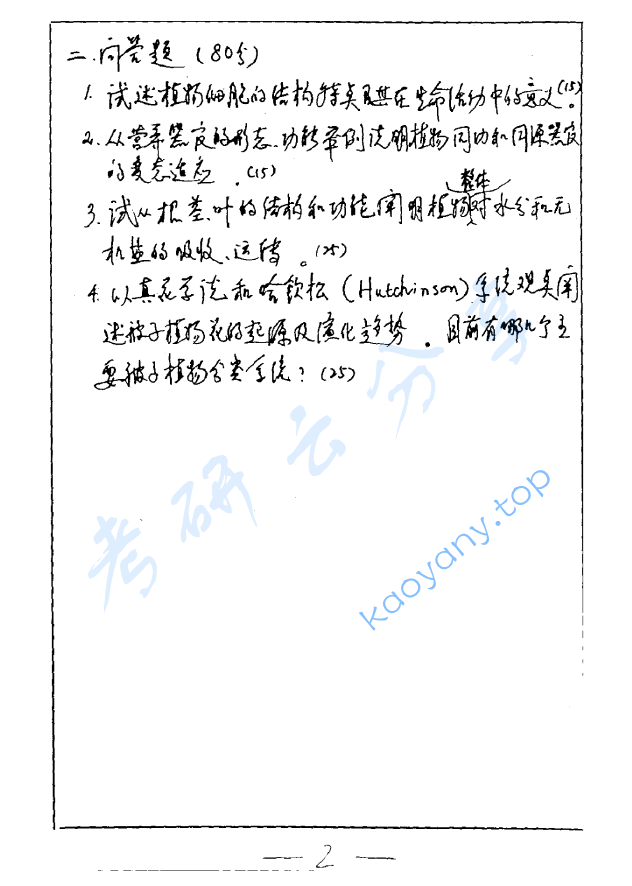 二.问答题 (80分)
1. 试述植物细胞的结构特点及其在生命活动中的意义(15)。
2. 从营养器官的形态、功能举例说明植物同功和同源器官
的变态适应。(15)
3. 试从根、茎、叶的结构和功能阐明植物整体对水分和无
机盐的吸收、运转。(25)
4. 以真花学说和哈钦松 (Hutchinson) 系统观点阐
述被子植物花的起源及演化趋势。目前有哪几个主
要被子植物分类系统? (25)
考研云分享
kaoyany.top
— 2 —